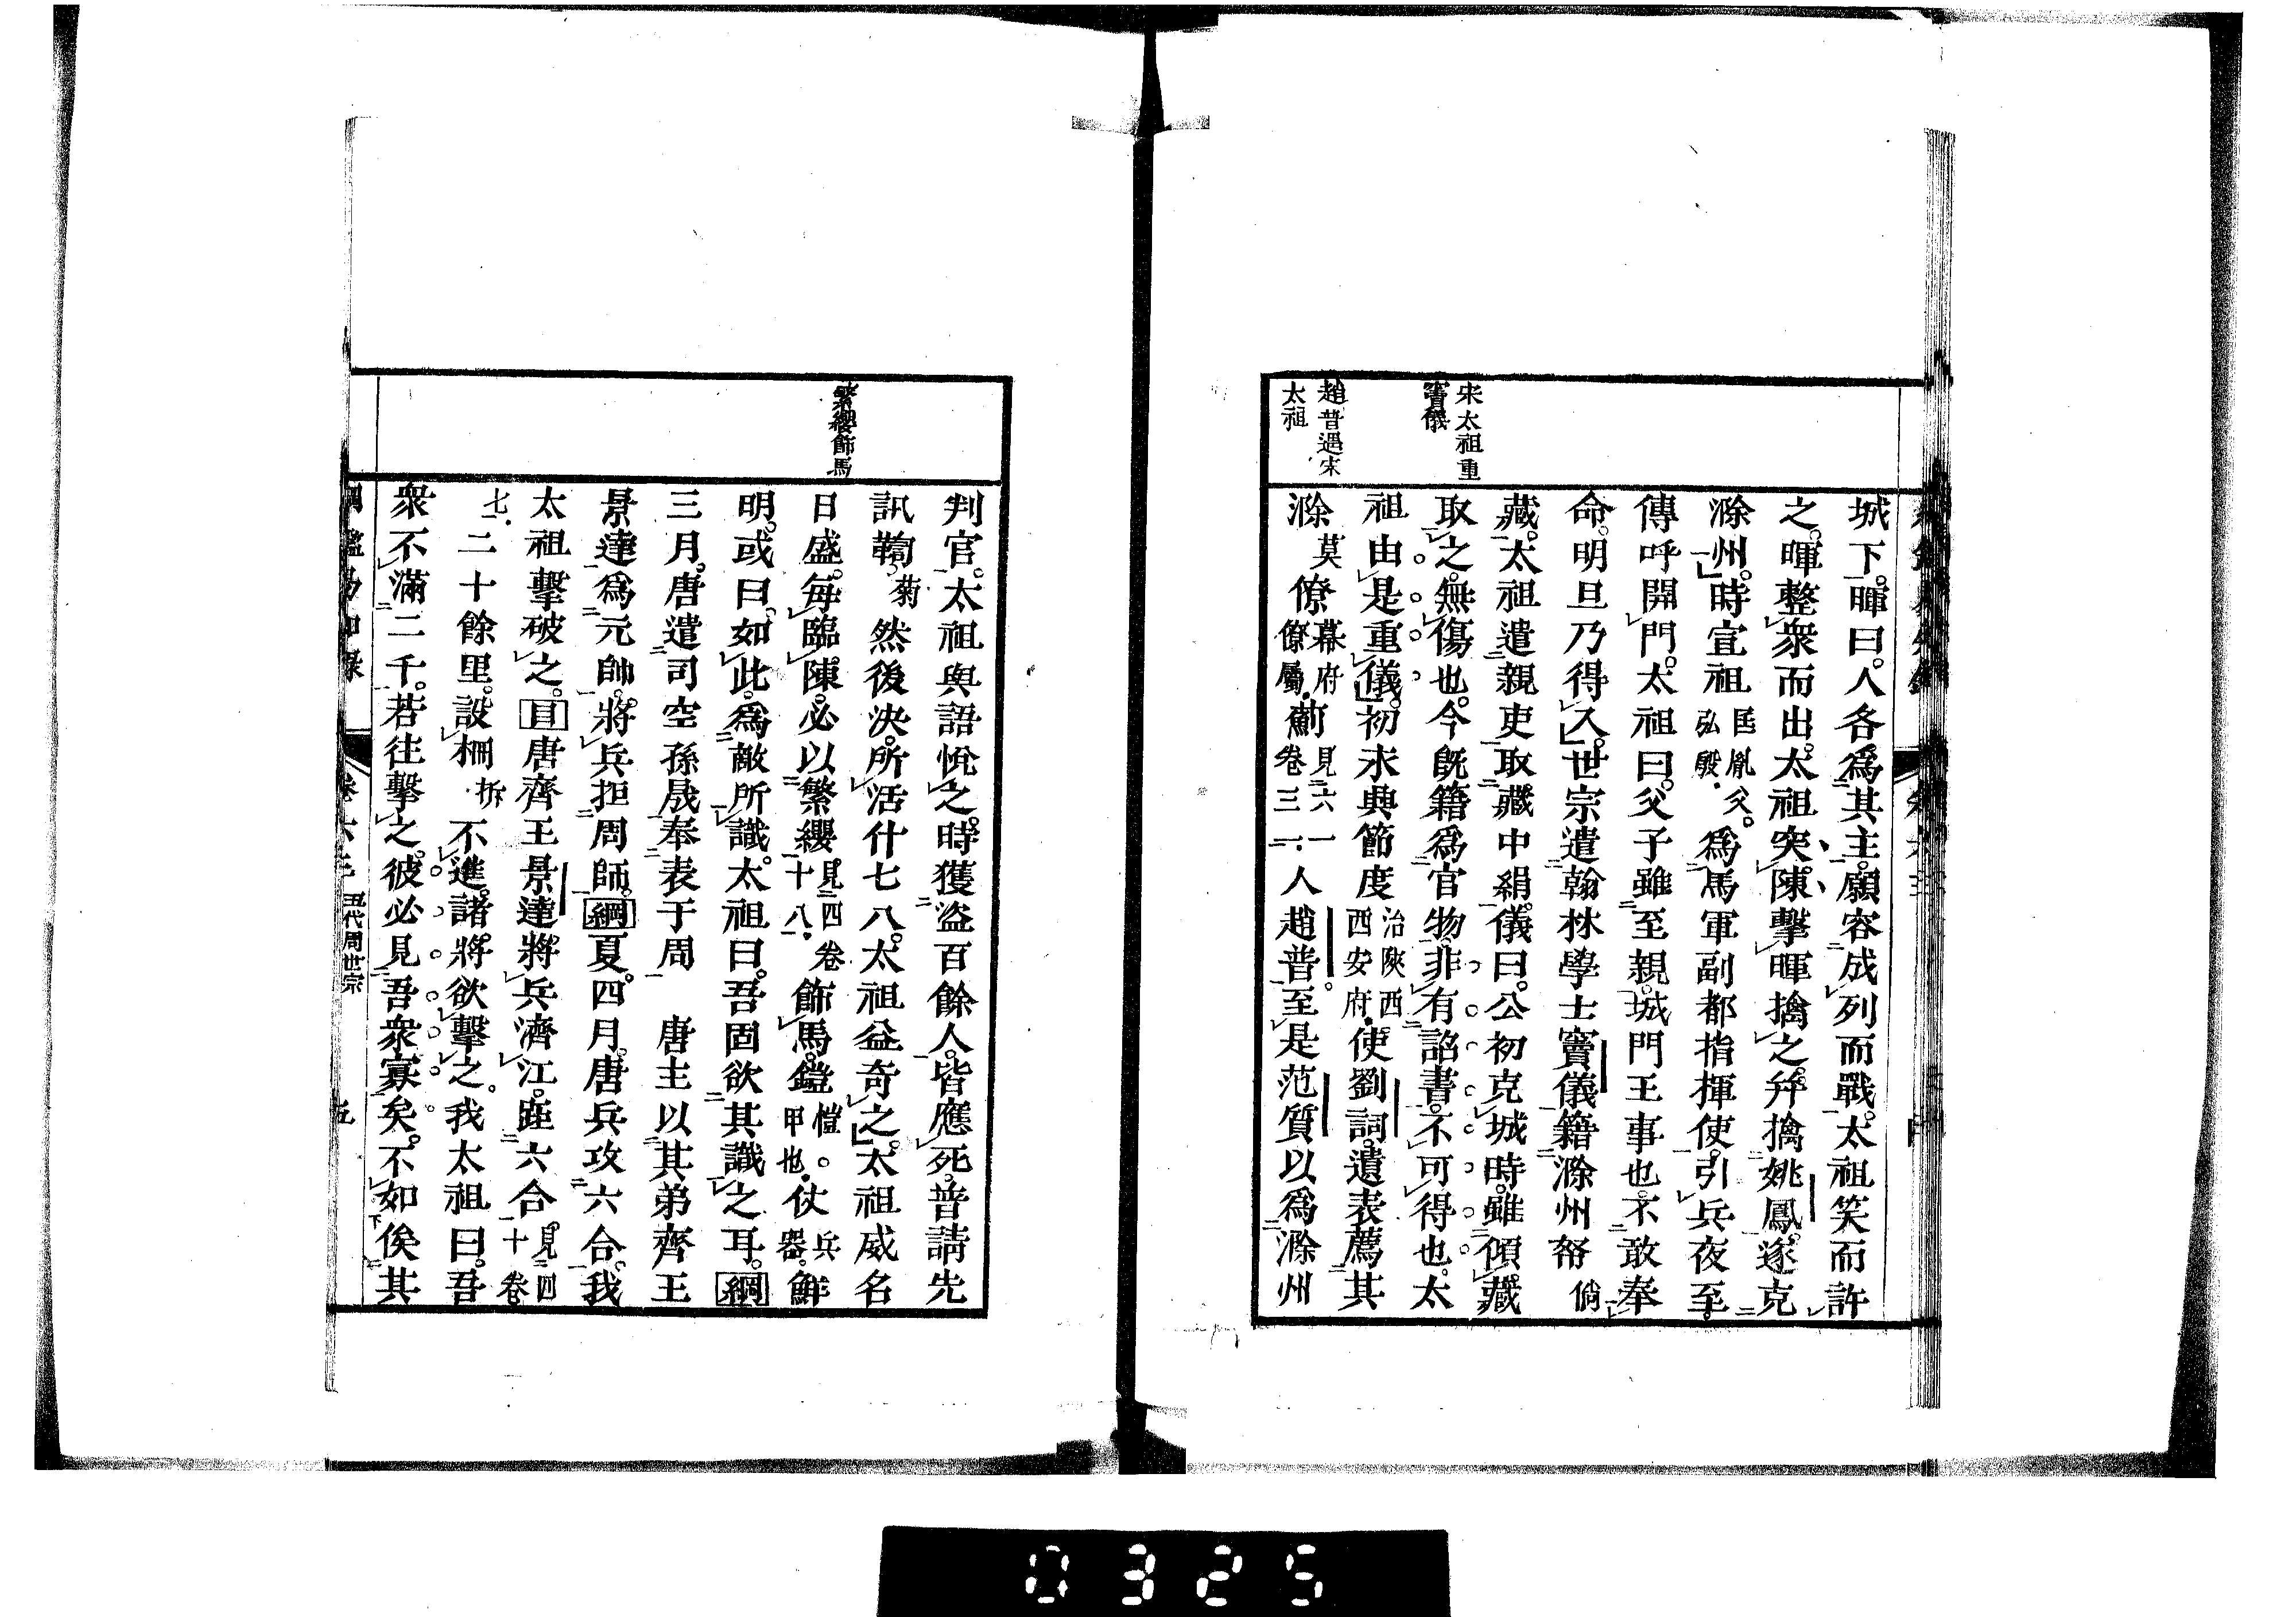 宋太祖重
竇儀
趙普遇宋
太祖
城下。暉曰。人各爲其主。願容成列而戰。太祖笑而許
之。暉整衆而出。太祖突陳擊暉擒之。幷擒姚鳳。遂克
滁州。時宣祖匡胤父。弘殷。爲馬軍副都指揮使。引兵夜至。
傳呼開門。太祖曰。父子雖至親。城門王事也。不敢奉
命。明旦乃得入。世宗遣翰林學士竇儀籍滁州帑倘
藏。太祖遣親吏取藏中絹。儀曰。公初克城時。雖傾藏
取之。無傷也。今既籍爲官物。非有詔書。不可得也。太
祖由是重儀。初永興節度治陝西西安府。使劉詞。遺表薦其
滁莫僚幕府僚屬。薊見六一卷三一。人趙普。至是范質以爲滁州
繁纓飾馬
判官。太祖與語悅之。時獲盜百餘人。皆應死。普請先
訊鞫菊然後決。所活什七八。太祖益奇之。太祖威名
日盛。每臨陳。必以繁纓見四卷十八。飾馬。鎧愷。甲也。仗兵器。鮮
明。或曰。如此。爲敵所識。太祖曰。吾固欲其識之耳。綱
三月。唐遣司空孫晟奉表于周 唐主以其弟齊王
景達爲元帥。將兵拒周師。綱夏。四月。唐兵攻六合。我
太祖擊破之。目唐齊王景達。將兵濟江。距六合見四十卷
七。二十餘里。設柵拆不進。諸將欲擊之。我太祖曰。吾
衆不滿二千。若往擊之。彼必見吾衆寡矣。不如俟其
綱鑑易知錄 卷六三 五代周世宗 五
0325